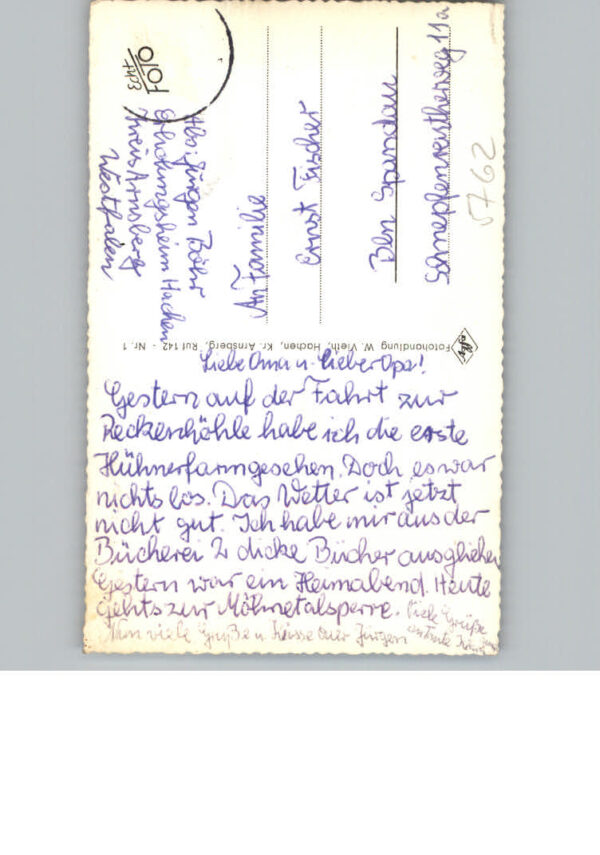 Liebe Oma u. lieber Opa!
Gestern auf der Fahrt zur
Reckenhöhle habe ich die erste
Hühnerfarm gesehen. Doch es war
nichts los. Das Wetter ist jetzt
nicht gut. Ich habe mir aus der
Bücherei 2 dicke Bücher ausgliehen
Gestern war ein Heimabend. Heute
gehts zur Möhnetalsperre. Viele Grüße
Nun viele Grüße u. Küsse Euer Jürgen
Fotohandlung W. Vieth, Hachen, Kr. Arnsberg, Ruf 142 - Nr. 1
FOTO
Abs: Jürgen Böhr
Erholungsheim Hachen
Kreis Arnsberg
Westfalen
An Familie
Ernst Fischer
Bln Spandau
Schnepfenreutherweg 11a
5762